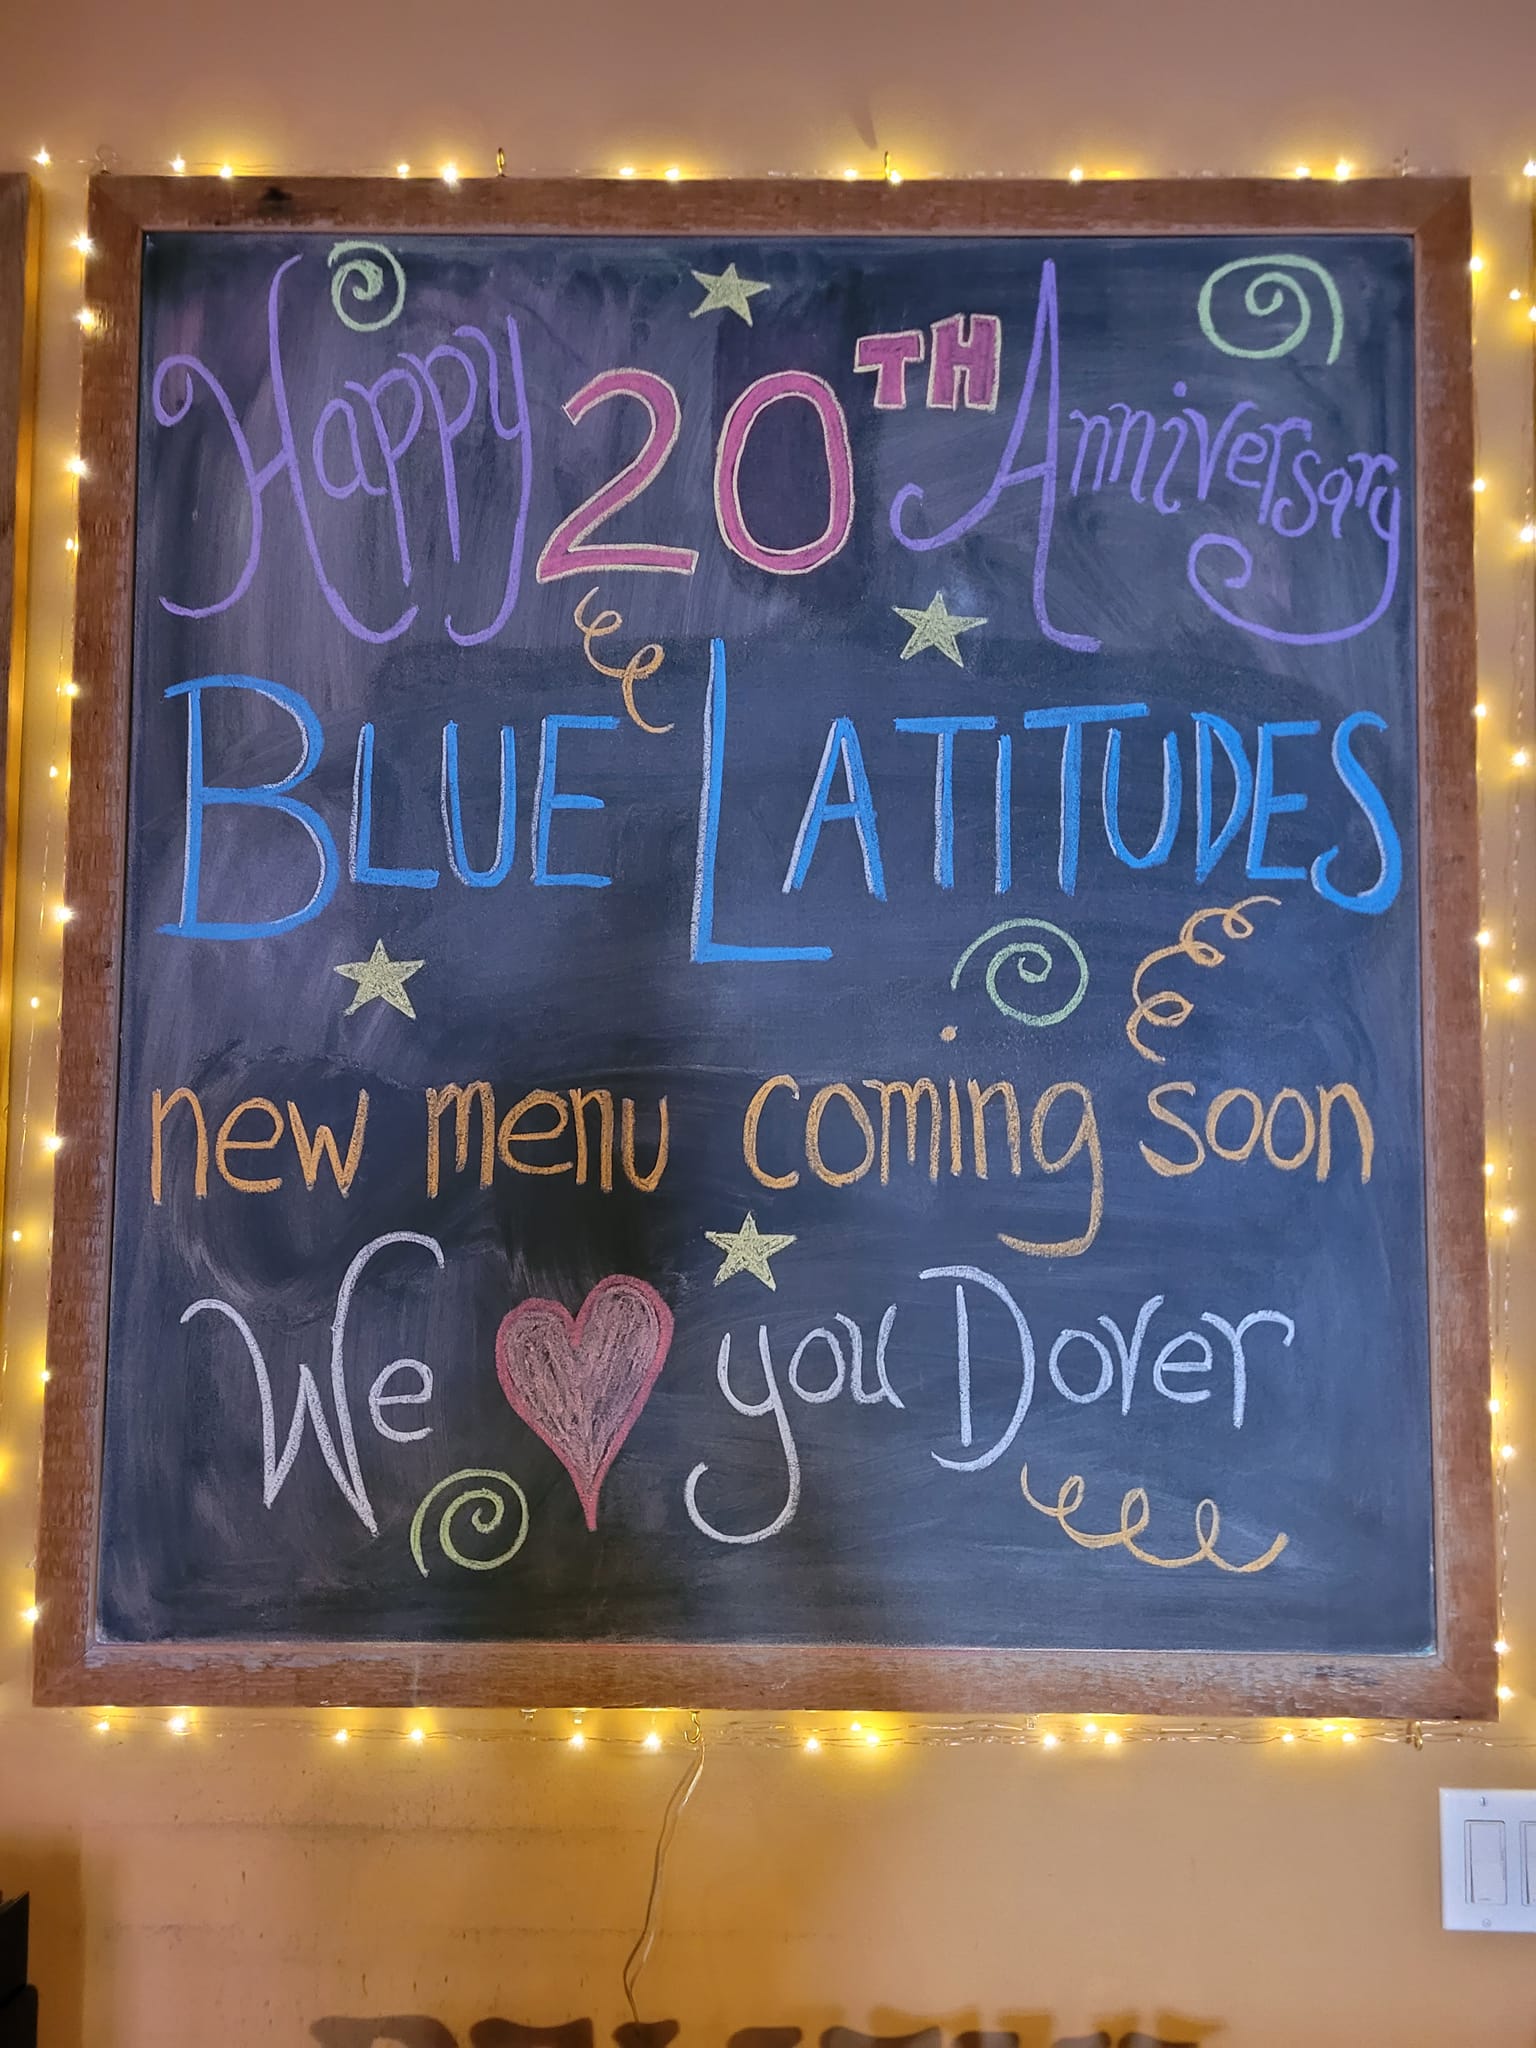 Happy 20TH Anniversary
BLUE LATITUDES
new menu coming soon
We ❤ you Dover